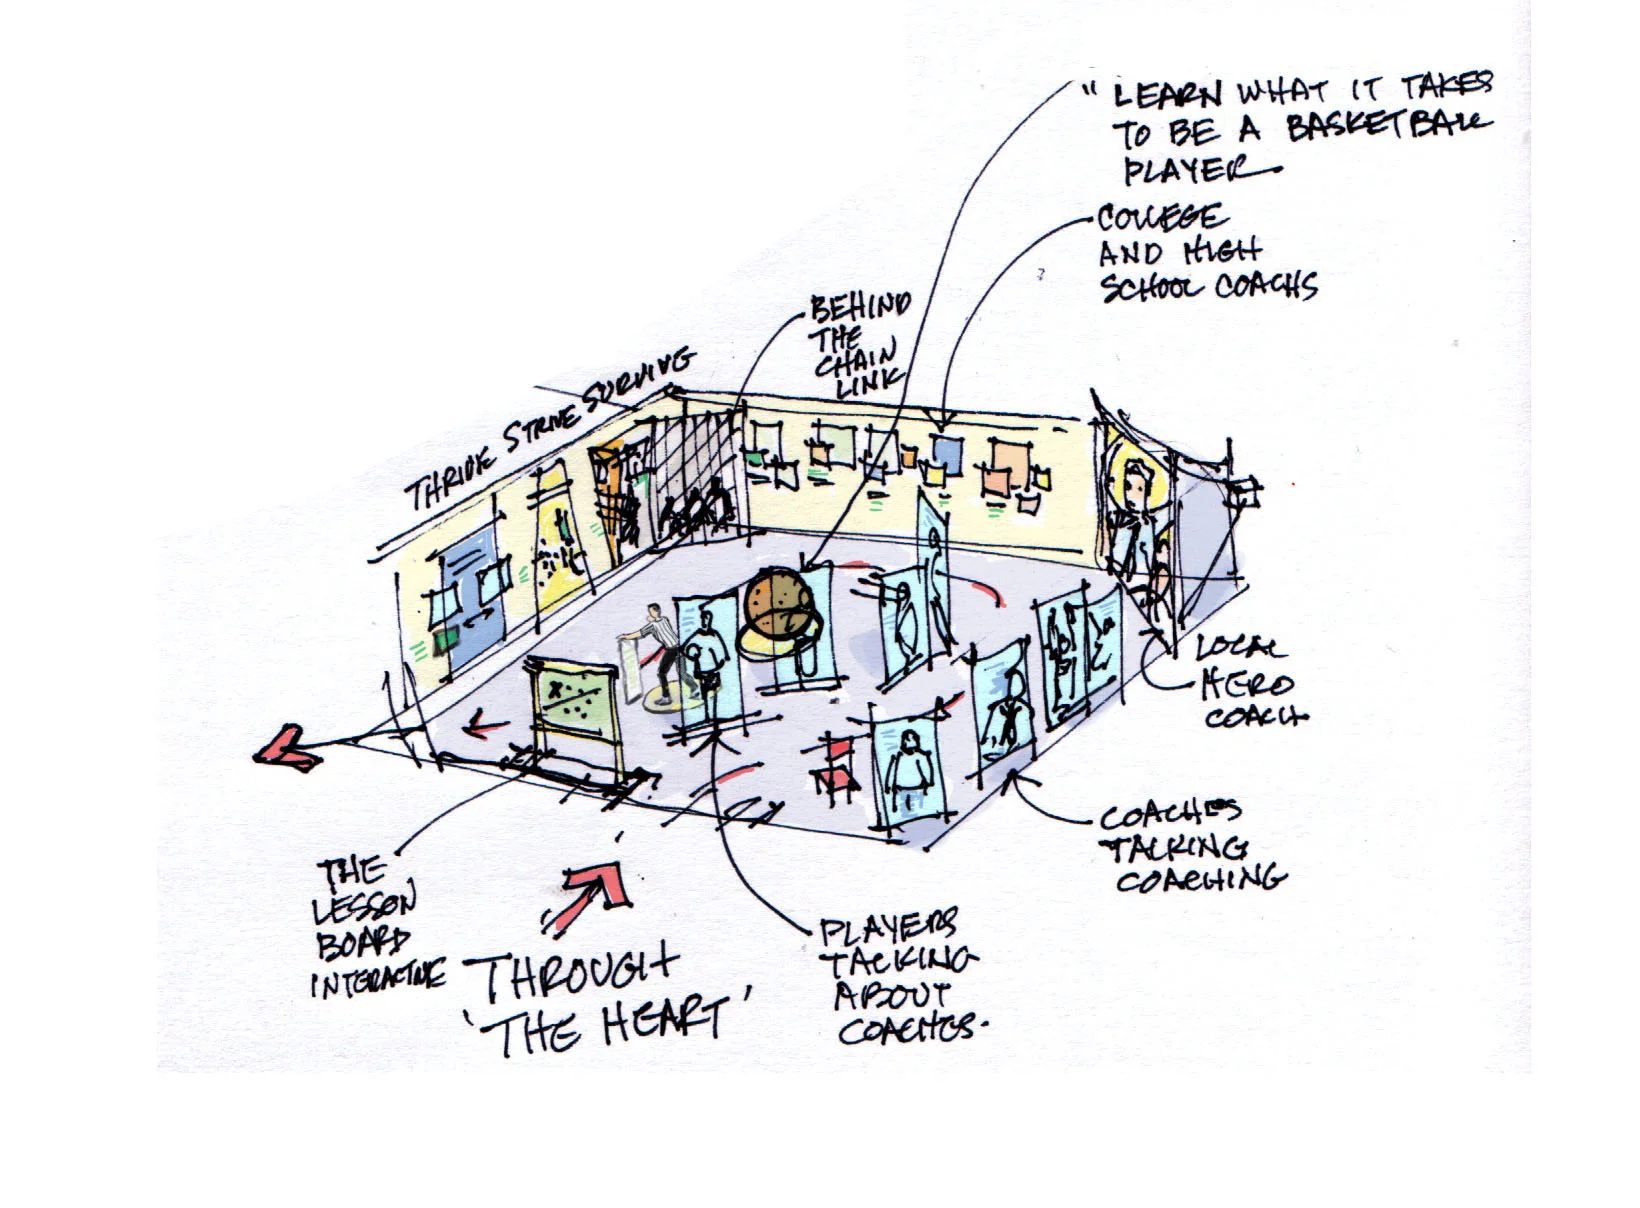 " LEARN WHAT IT TAKES
TO BE A BASKETBALL
PLAYER
COLLEGE
AND HIGH
SCHOOL COACHS
BEHIND
THE
CHAIN
LINK
THRIVE STRIVE SURVIVE
LOCAL
HERO
COACH
COACHES
TALKING
COACHING
THE
LESSON
BOARD
INTERACTIVE
THROUGH
'THE HEART'
PLAYERS
TALKING
ABOUT
COACHES.